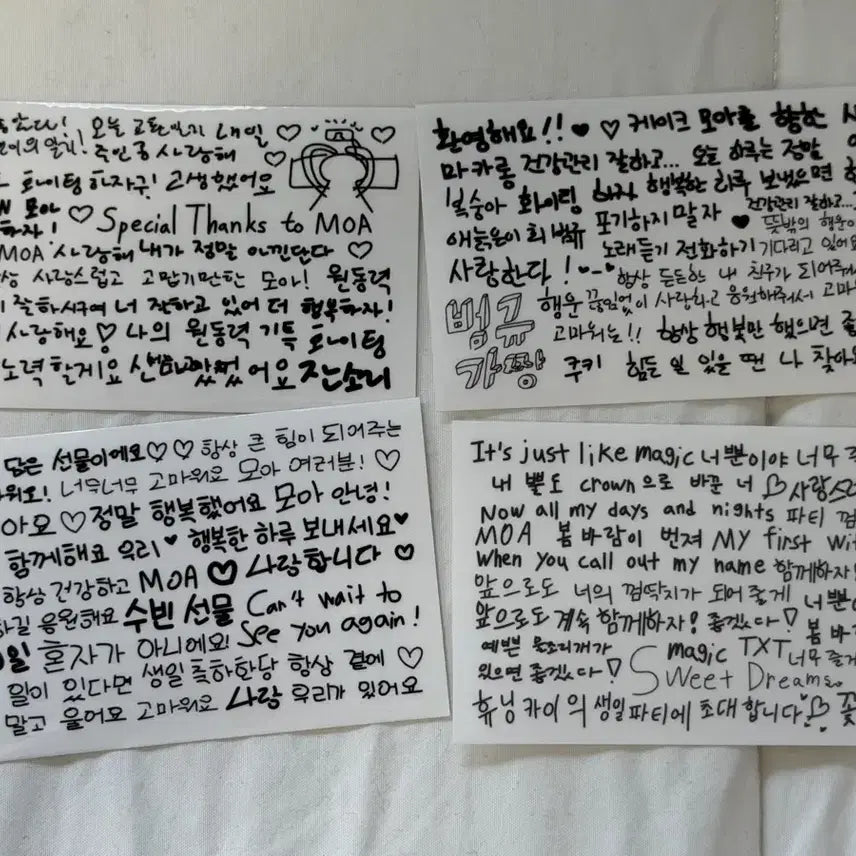 오늘 고된 내일
주인공 사랑해
화이팅하자구! 고생했어요
모아
하자! Special Thanks to MOA
MOA 사랑해 내가 정말 아낀단다
사랑스럽고 고맙기만한 모아! 원동력
잘하시구여 너 잘하고 있어 더 행복하자!
사랑해요 나의 원동력 기특 화이팅
노력할게요 어요 잔소리
환영해요!! 케이크 모아를 향한
마카롱 건강관리 잘하고... 오늘 하루는 정말
복숭아 화이팅 하자 행복한 하루 보냈으면
애늙은이 최범규 포기하지 말자 건강관리 잘하고...
뜻밖의 행운이
노래듣기 전화하기 기다리고 있어요
사랑한다! 항상 든든한 내 친구가 되어줘서
범규 행운 끊임없이 사랑하고 응원해줘서 고마
고마워는!! 항상 행복만 했으면
가짱 쿠키 힘든 일 있을 땐 나 찾아
담은 선물이에요 항상 큰 힘이 되어주는
너무너무 고마워요 모아 여러분!
정말 행복했어요 모아 안녕!
함께해요 우리 행복한 하루 보내세요
항상 건강하고 MOA 사랑합니다
하길 응원해요 수빈 선물 Can't wait to
혼자가 아니에요! See you again!
일이 있다면 생일 축하한당 항상 곁에
말고 울어모 고마워요 사랑 우리가 있어요
It's just like magic 너뿐이야 너무
내 뿔도 crown으로 바꾼 너 사랑
Now all my days and nights 파티
MOA 봄바람이 번져 MY first
When you call out my name 함께하자!
앞으로도 너의 껌딱지가 되어줄게 너뿐
앞으로도 계속 함께하자! 좋겠다! 봄바
예쁜 목소리가 magic TXT 너무
있으면 좋겠다! Sweet Dreams
휴닝카이의 생일파티에 초대합니다 꽃